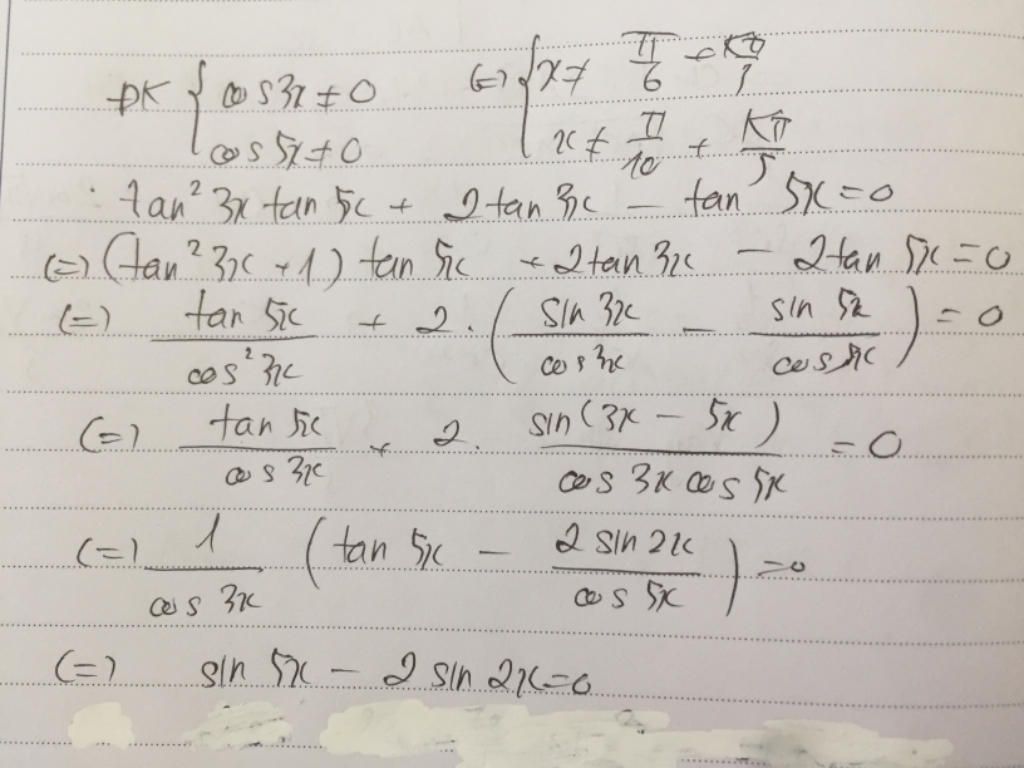 ĐK { cos3x ≠ 0 (=) { x ≠ π/6 + kπ/3
cos 5x ≠ 0 x ≠ π/10 + kπ/5
tan² 3x tan 5x + 2 tan 3x - tan 5x = 0
(=) (tan² 3x + 1) tan 5x + 2 tan 3x - 2 tan 5x = 0
(=) tan 5x / cos² 3x + 2. ( sin 3x / cos 3x - sin 5x / cos 5x ) = 0
(=) tan 5x / cos 3x + 2. sin(3x - 5x) / cos 3x cos 5x = 0
(=) 1 / cos 3x ( tan 5x - 2 sin 2x / cos 5x ) = 0
(=) sin 5x - 2 sin 2x = 0